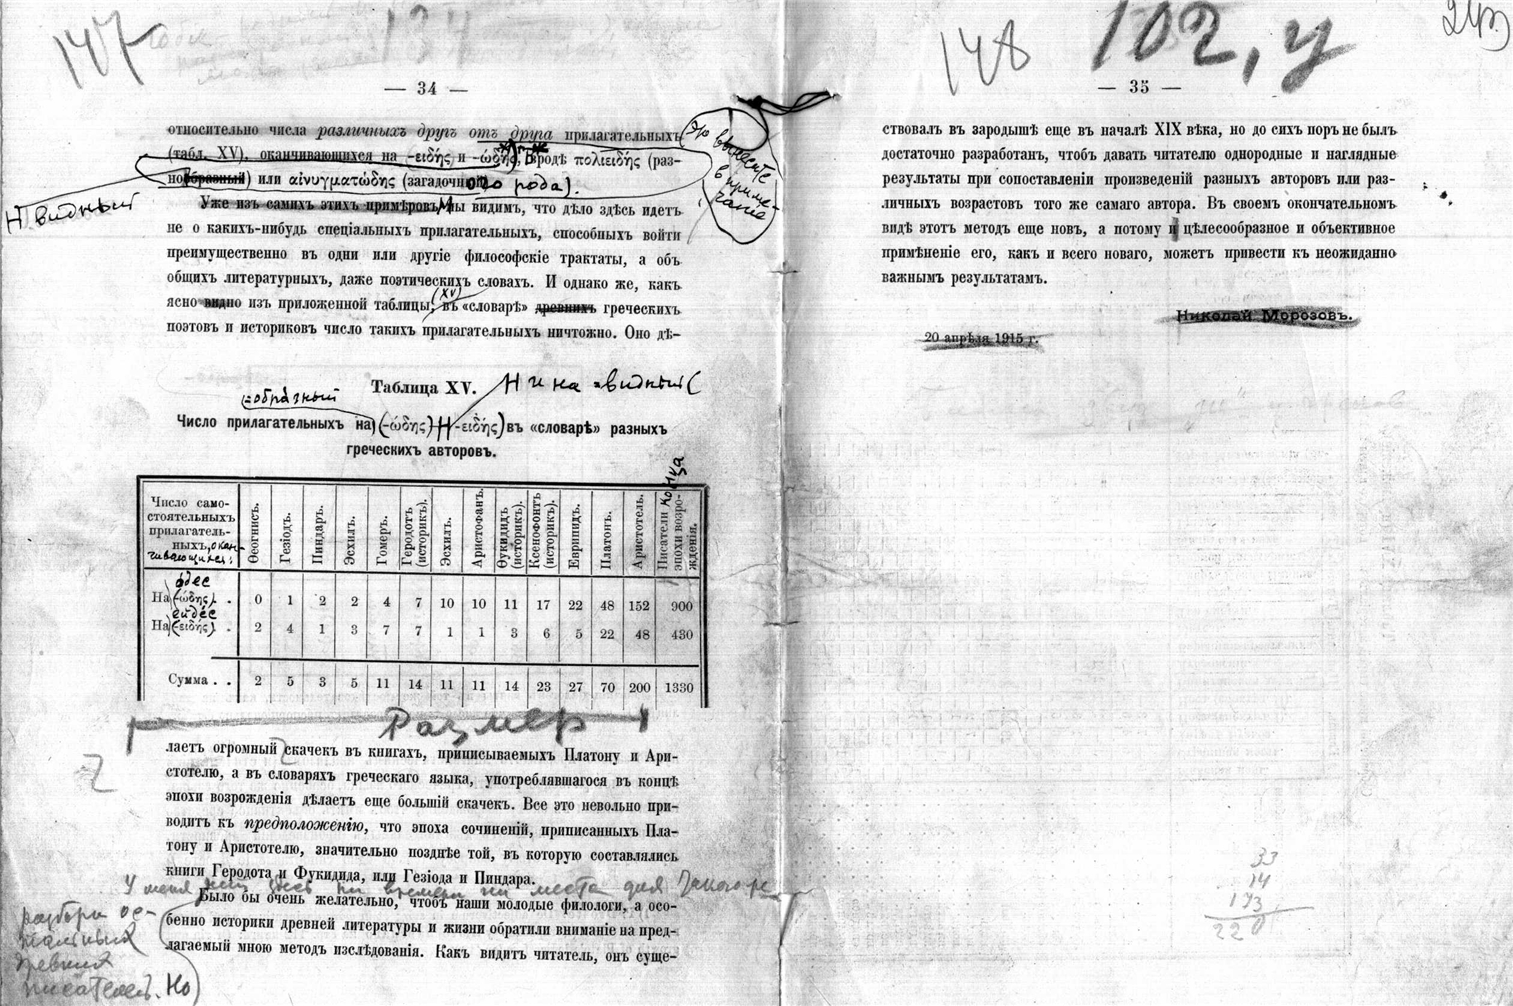 147
134
— 34 —
относительно числа различныхъ другъ отъ друга прилагательныхъ
(табл. XV), оканчивающихся на (-ειδής и -ώδης), Вродѣ πολιειδής (раз-
нообразный) или αἰνυγματώδης (загадочнаго рода).
Н видный
Это вынести
в приме-
чание
Уже изъ самихъ этихъ примѣровъ Мы видимъ, что дѣло здѣсь идетъ
не о какихъ-нибудь спеціальныхъ прилагательныхъ, способныхъ войти
преимущественно въ одни или другіе философскіе трактаты, а объ
общихъ литературныхъ, даже поэтическихъ словахъ. И однако же, какъ
ясно видно изъ приложенной таблицы, (XV) въ «словарѣ» древнихъ греческихъ
поэтовъ и историковъ число такихъ прилагательныхъ ничтожно. Оно дѣ-
Таблица XV.
Н и на -видный (
=образный
Число прилагательныхъ на (-ώδης) Н (-ειδής) въ «словарѣ» разныхъ
греческихъ авторовъ.
Число само-
стоятельныхъ
прилагатель-
ныхъ, окан-
чивающихся:
Ѳеогнисъ.
Гезіодъ.
Пиндаръ.
Эсхилъ.
Гомеръ.
Геродотъ (историкъ).
Эсхилъ.
Аристофанъ.
Ѳукидидъ (историкъ).
Ксенофонтъ (историкъ).
Еврипидъ.
Платонъ.
Аристотель.
Писатели конца эпохи возро-
жденія.
одес
На (-ώδης) . 0 1 2 2 4 7 10 10 11 17 22 48 152 900
еидес
На (-ειδής) . 2 4 1 3 7 7 1 1 3 6 5 22 48 430
Сумма . . 2 5 3 5 11 14 11 11 14 23 27 70 200 1330
Размер
лаетъ огромный скачекъ въ книгахъ, приписываемыхъ Платону и Ари-
стотелю, а въ словаряхъ греческаго языка, употреблявшагося въ концѣ
эпохи возрожденія дѣлаетъ еще большій скачекъ. Все это невольно при-
водитъ къ предположенію, что эпоха сочиненій, приписанныхъ Пла-
тону и Аристотелю, значительно позднѣе той, въ которую составлялись
книги Геродота и Фукидида, или Гезіода и Пиндара.
У меня нет здесь ни времени ни места для такого ре
разбора ос-
тальных
древних
писателей. Но
Было бы очень желательно, чтобъ наши молодые филологи, а осо-
бенно историки древней литературы и жизни обратили вниманіе на пред-
лагаемый мною методъ изслѣдованія. Какъ видитъ читатель, онъ суще-
148
102, у
243
— 35 —
ствовалъ въ зародышѣ еще въ началѣ XIX вѣка, но до сихъ поръ не былъ
достаточно разработанъ, чтобъ давать читателю однородные и наглядные
результаты при сопоставленіи произведеній разныхъ авторовъ или раз-
личныхъ возрастовъ того же самаго автора. Въ своемъ окончательномъ
видѣ этотъ методъ еще новъ, а потому и цѣлесообразное и объективное
примѣненіе его, какъ и всего новаго, можетъ привести къ неожиданно
важнымъ результатамъ.
Николай Морозовъ.
20 апрѣля 1915 г.
33
14
173
220